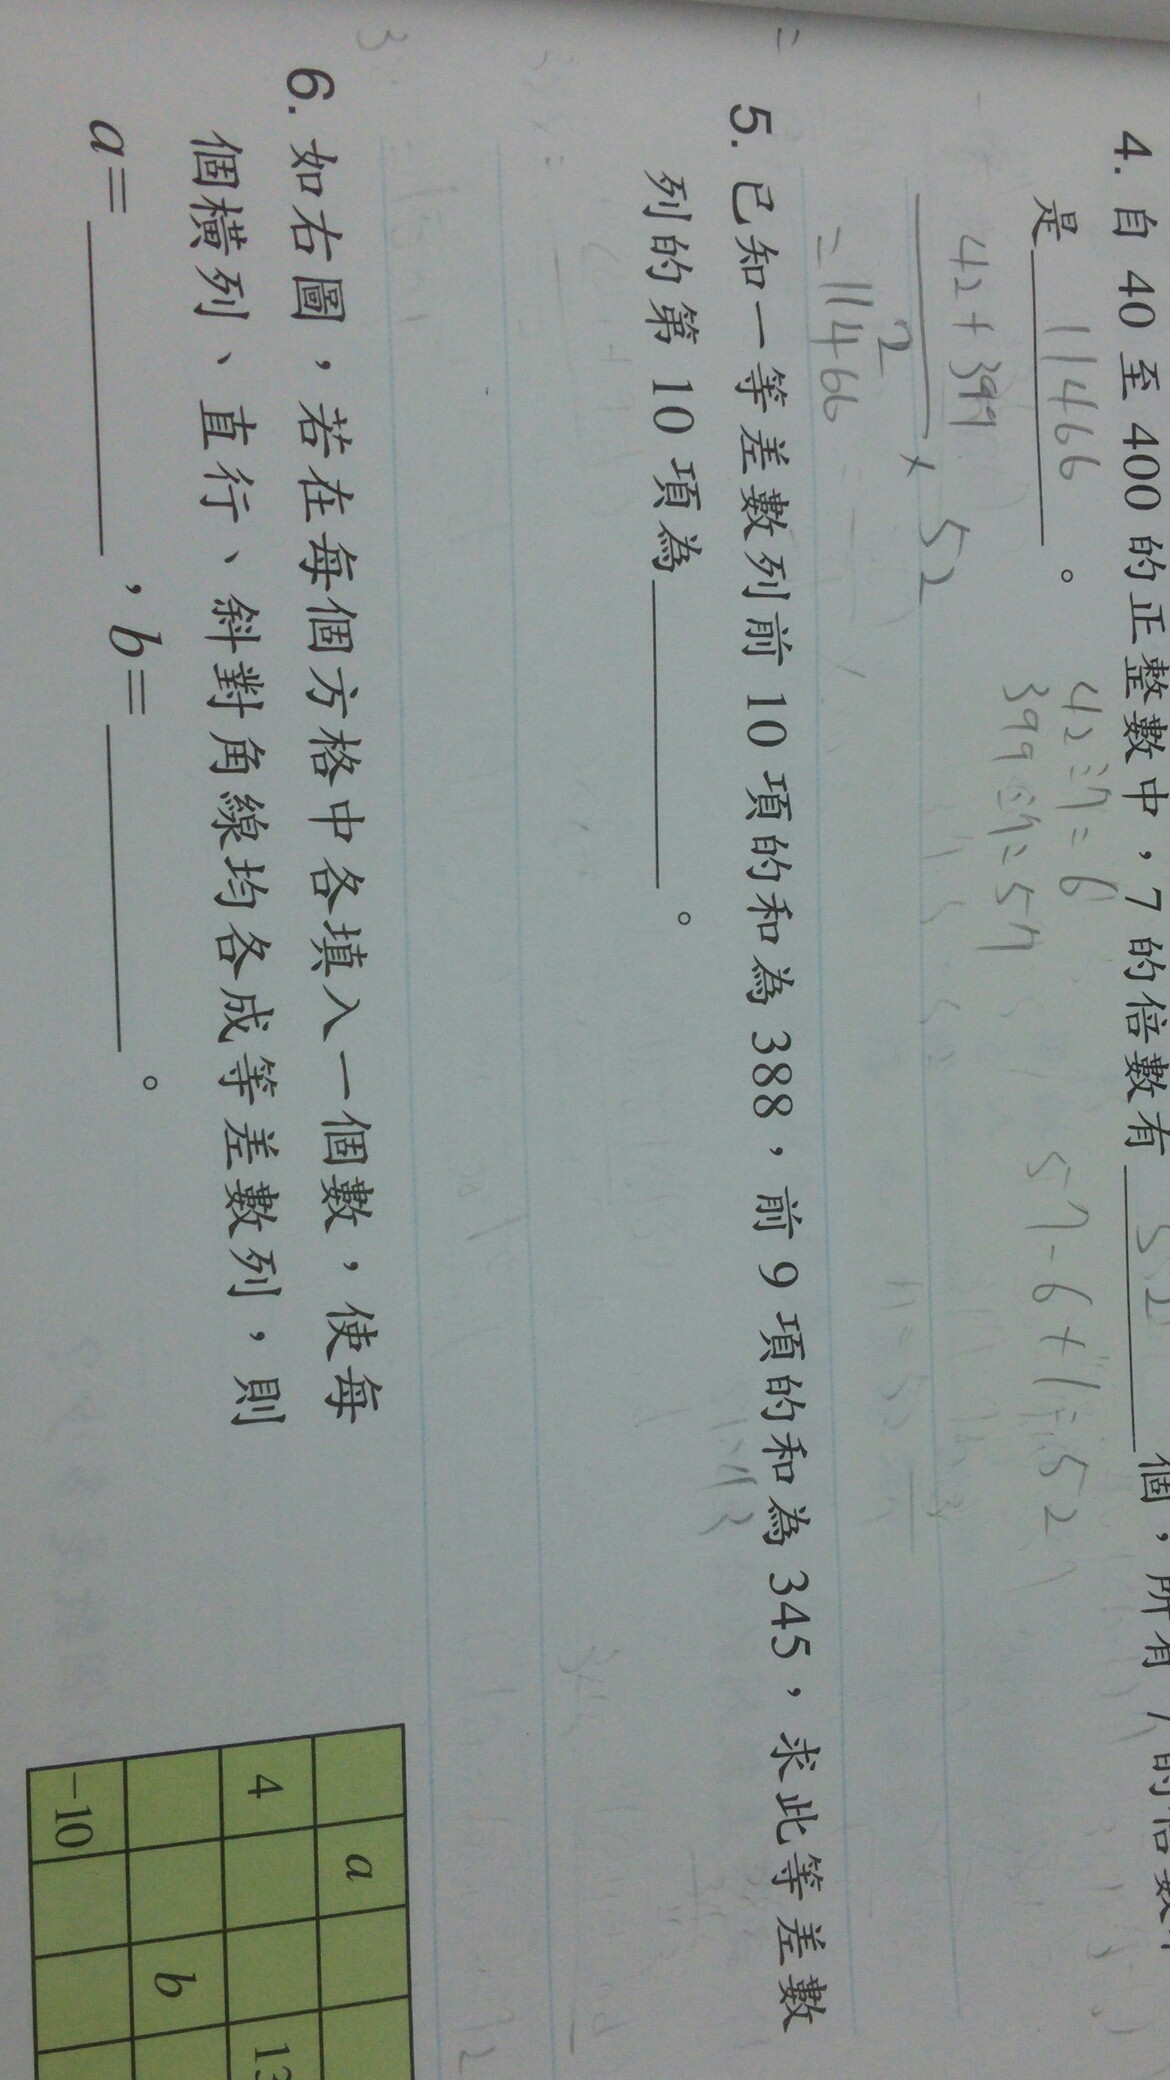 4. 自 40 至 400 的正整數中，7 的倍數有 52 個，所有 7 的倍數
是 11466 。
42÷7=6
399÷7=57
57-6+1=52
42+399
2
× 52
=11466
5. 已知一等差數列前 10 項的和為 388，前 9 項的和為 345，求此等差數
列的第 10 項為 。
6. 如右圖，若在每個方格中各填入一個數，使每
個橫列、直行、斜對角線均各成等差數列，則
a= ，b= 。
a
4 13
b
-10